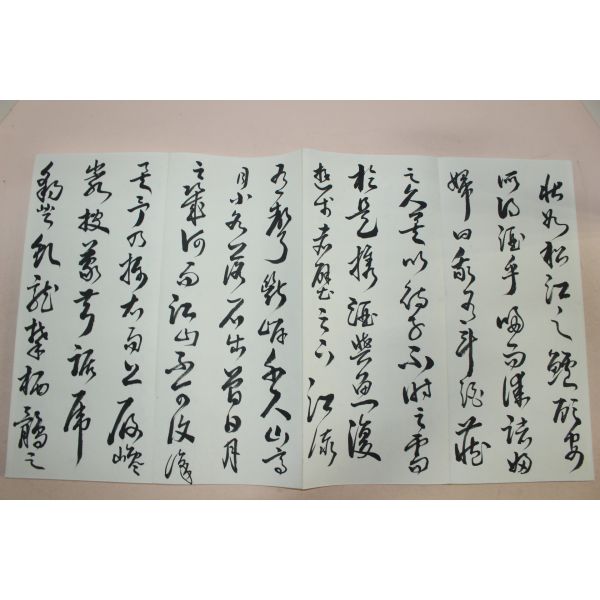 狀如松江之鱸顧安
所得酒乎歸而謀諸婦
婦曰我有斗酒藏
之久矣以待子不時之需
於是攜酒與魚復
遊於赤壁之下江流
有聲斷岸千尺山高
月小水落石出曾日月
之幾何而江山不可復識
矣予乃攝衣而上履巉
巖披蒙茸踞虎
豹登虬龍攀栖鶻之